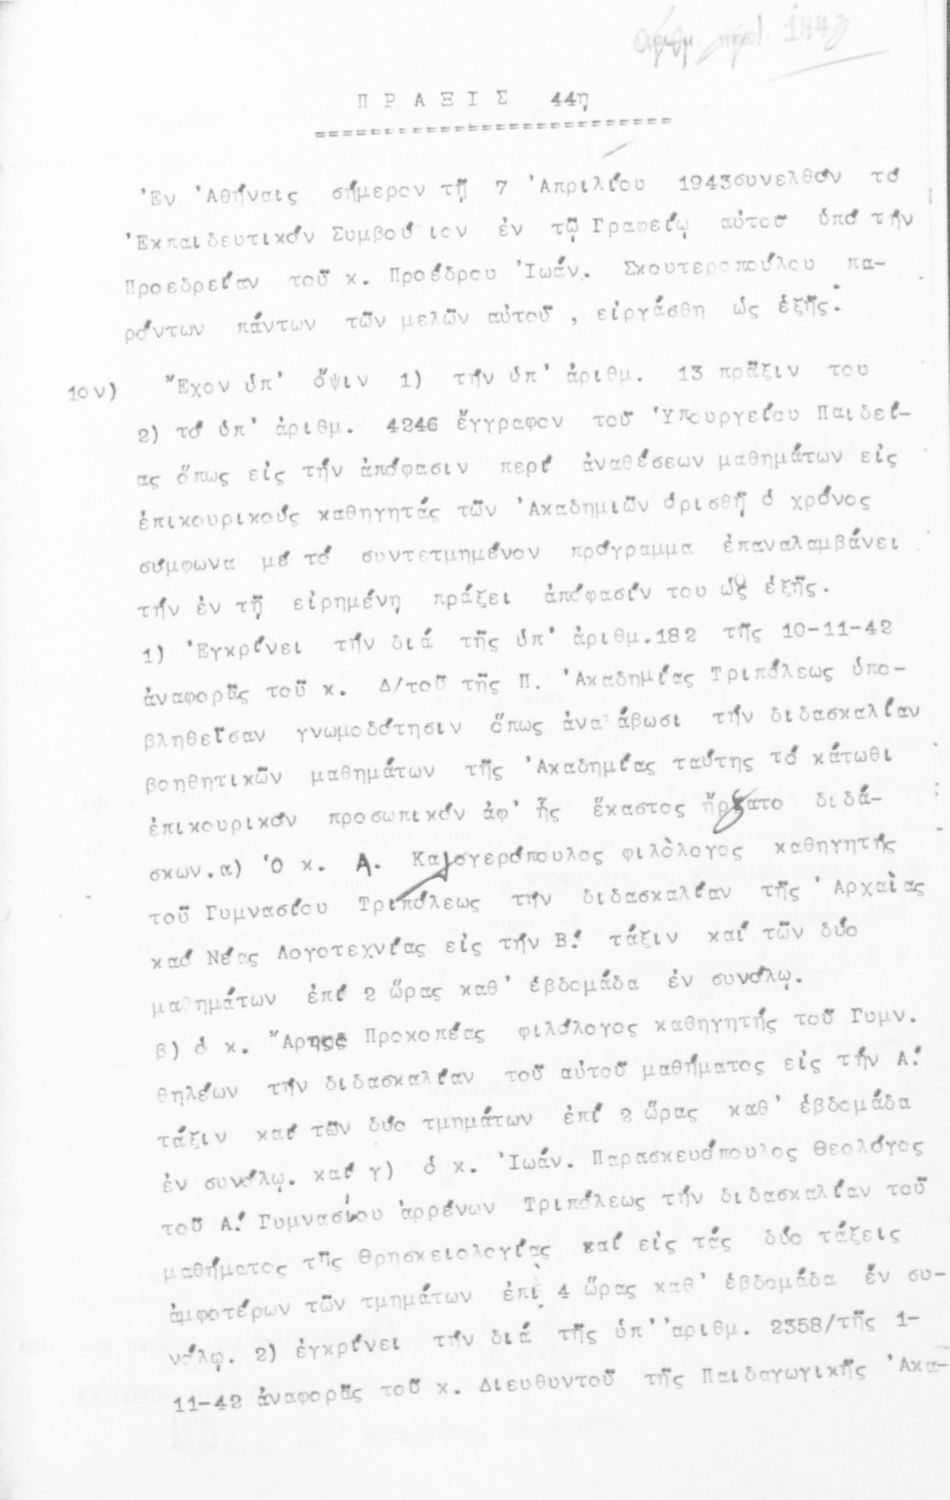 Αριθμ. πρωτ. 1443
ΠΡΑΞΙΣ 44η
Ἐν Ἀθήναις σήμερον τῇ 7 Ἀπριλίου 1943συνελθόν τό
Ἐκπαιδευτικόν Συμβούλιον ἐν τῷ Γραφείῳ αὐτοῦ ὑπό τήν
Προεδρείαν τοῦ κ. Προέδρου Ἰωάν. Σκουτεροπούλου πα-
ρόντων πάντων τῶν μελῶν αὐτοῦ , εἰργάσθη ὡς ἑξῆς:
1ον) Ἔχον ὑπ' ὄψιν 1) τήν ὑπ' ἀριθμ. 13 πρᾶξιν του
2) τό ὑπ' ἀριθμ. 4246 ἔγγραφον τοῦ Ὑπουργείου Παιδεί-
ας ὅπως εἰς τήν ἀπόφασιν περί ἀναθέσεων μαθημάτων εἰς
ἐπικουρικούς καθηγητάς τῶν Ἀκαδημιῶν ὁρισθῇ ὁ χρόνος
σύμφωνα μέ τό συντετμημένον πρόγραμμα ἐπαναλαμβάνει
τήν ἐν τῇ εἰρημένῃ πράξει ἀπόφασίν του ὡς ἑξῆς.
1) Ἐγκρίνει τήν διά τῆς ὑπ' ἀριθμ.182 τῆς 10-11-42
ἀναφορᾶς τοῦ κ. Δ/τοῦ τῆς Π. Ἀκαδημίας Τριπόλεως ὑπο-
βληθεῖσαν γνωμοδότησιν ὅπως ἀναλάβωσι τήν διδασκαλίαν
βοηθητικῶν μαθημάτων τῆς Ἀκαδημίας ταύτης τό κάτωθι
ἐπικουρικόν προσωπικόν ἀφ' ἧς ἕκαστος ἤρξατο διδά-
σκων.α) Ὁ κ. Α. Καλογερόπουλος φιλόλογος καθηγητής
τοῦ Γυμνασίου Τριπόλεως τήν διδασκαλίαν τῆς Ἀρχαίας
καί Νέας Λογοτεχνίας εἰς τήν Β! τάξιν καί τῶν δύο
μαθημάτων ἐπί 2 ὥρας καθ' ἑβδομάδα ἐν συνόλῳ.
β) ὁ κ. Ἄρης Προκοπέας φιλόλογος καθηγητής τοῦ Γυμν.
θηλέων τήν διδασκαλίαν τοῦ αὐτοῦ μαθήματος εἰς τήν Α!
τάξιν καί τῶν δύο τμημάτων ἐπί 2 ὥρας καθ' ἑβδομάδα
ἐν συνόλῳ. καί γ) ὁ κ. Ἰωάν. Παρασκευόπουλος Θεολόγος
τοῦ Α! Γυμνασίου ἀρρένων Τριπόλεως τήν διδασκαλίαν τοῦ
μαθήματος τῆς Θρησκειολογίας καί εἰς τάς δύο τάξεις
ἀμφοτέρων τῶν τμημάτων ἐπί 4 ὥρας καθ' ἑβδομάδα ἐν συ-
νόλῳ. 2) ἐγκρίνει τήν διά τῆς ὑπ' ἀριθμ. 2358/τῆς 1-
11-42 ἀναφορᾶς τοῦ κ. Διευθυντοῦ τῆς Παιδαγωγικῆς Ἀκα-